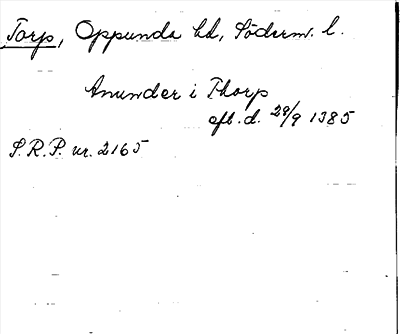 Torp, Oppunda hd, Söderm. l.
Anunder i Thorp
eft. d. 29/9 1385
S.R.P. nr. 2165